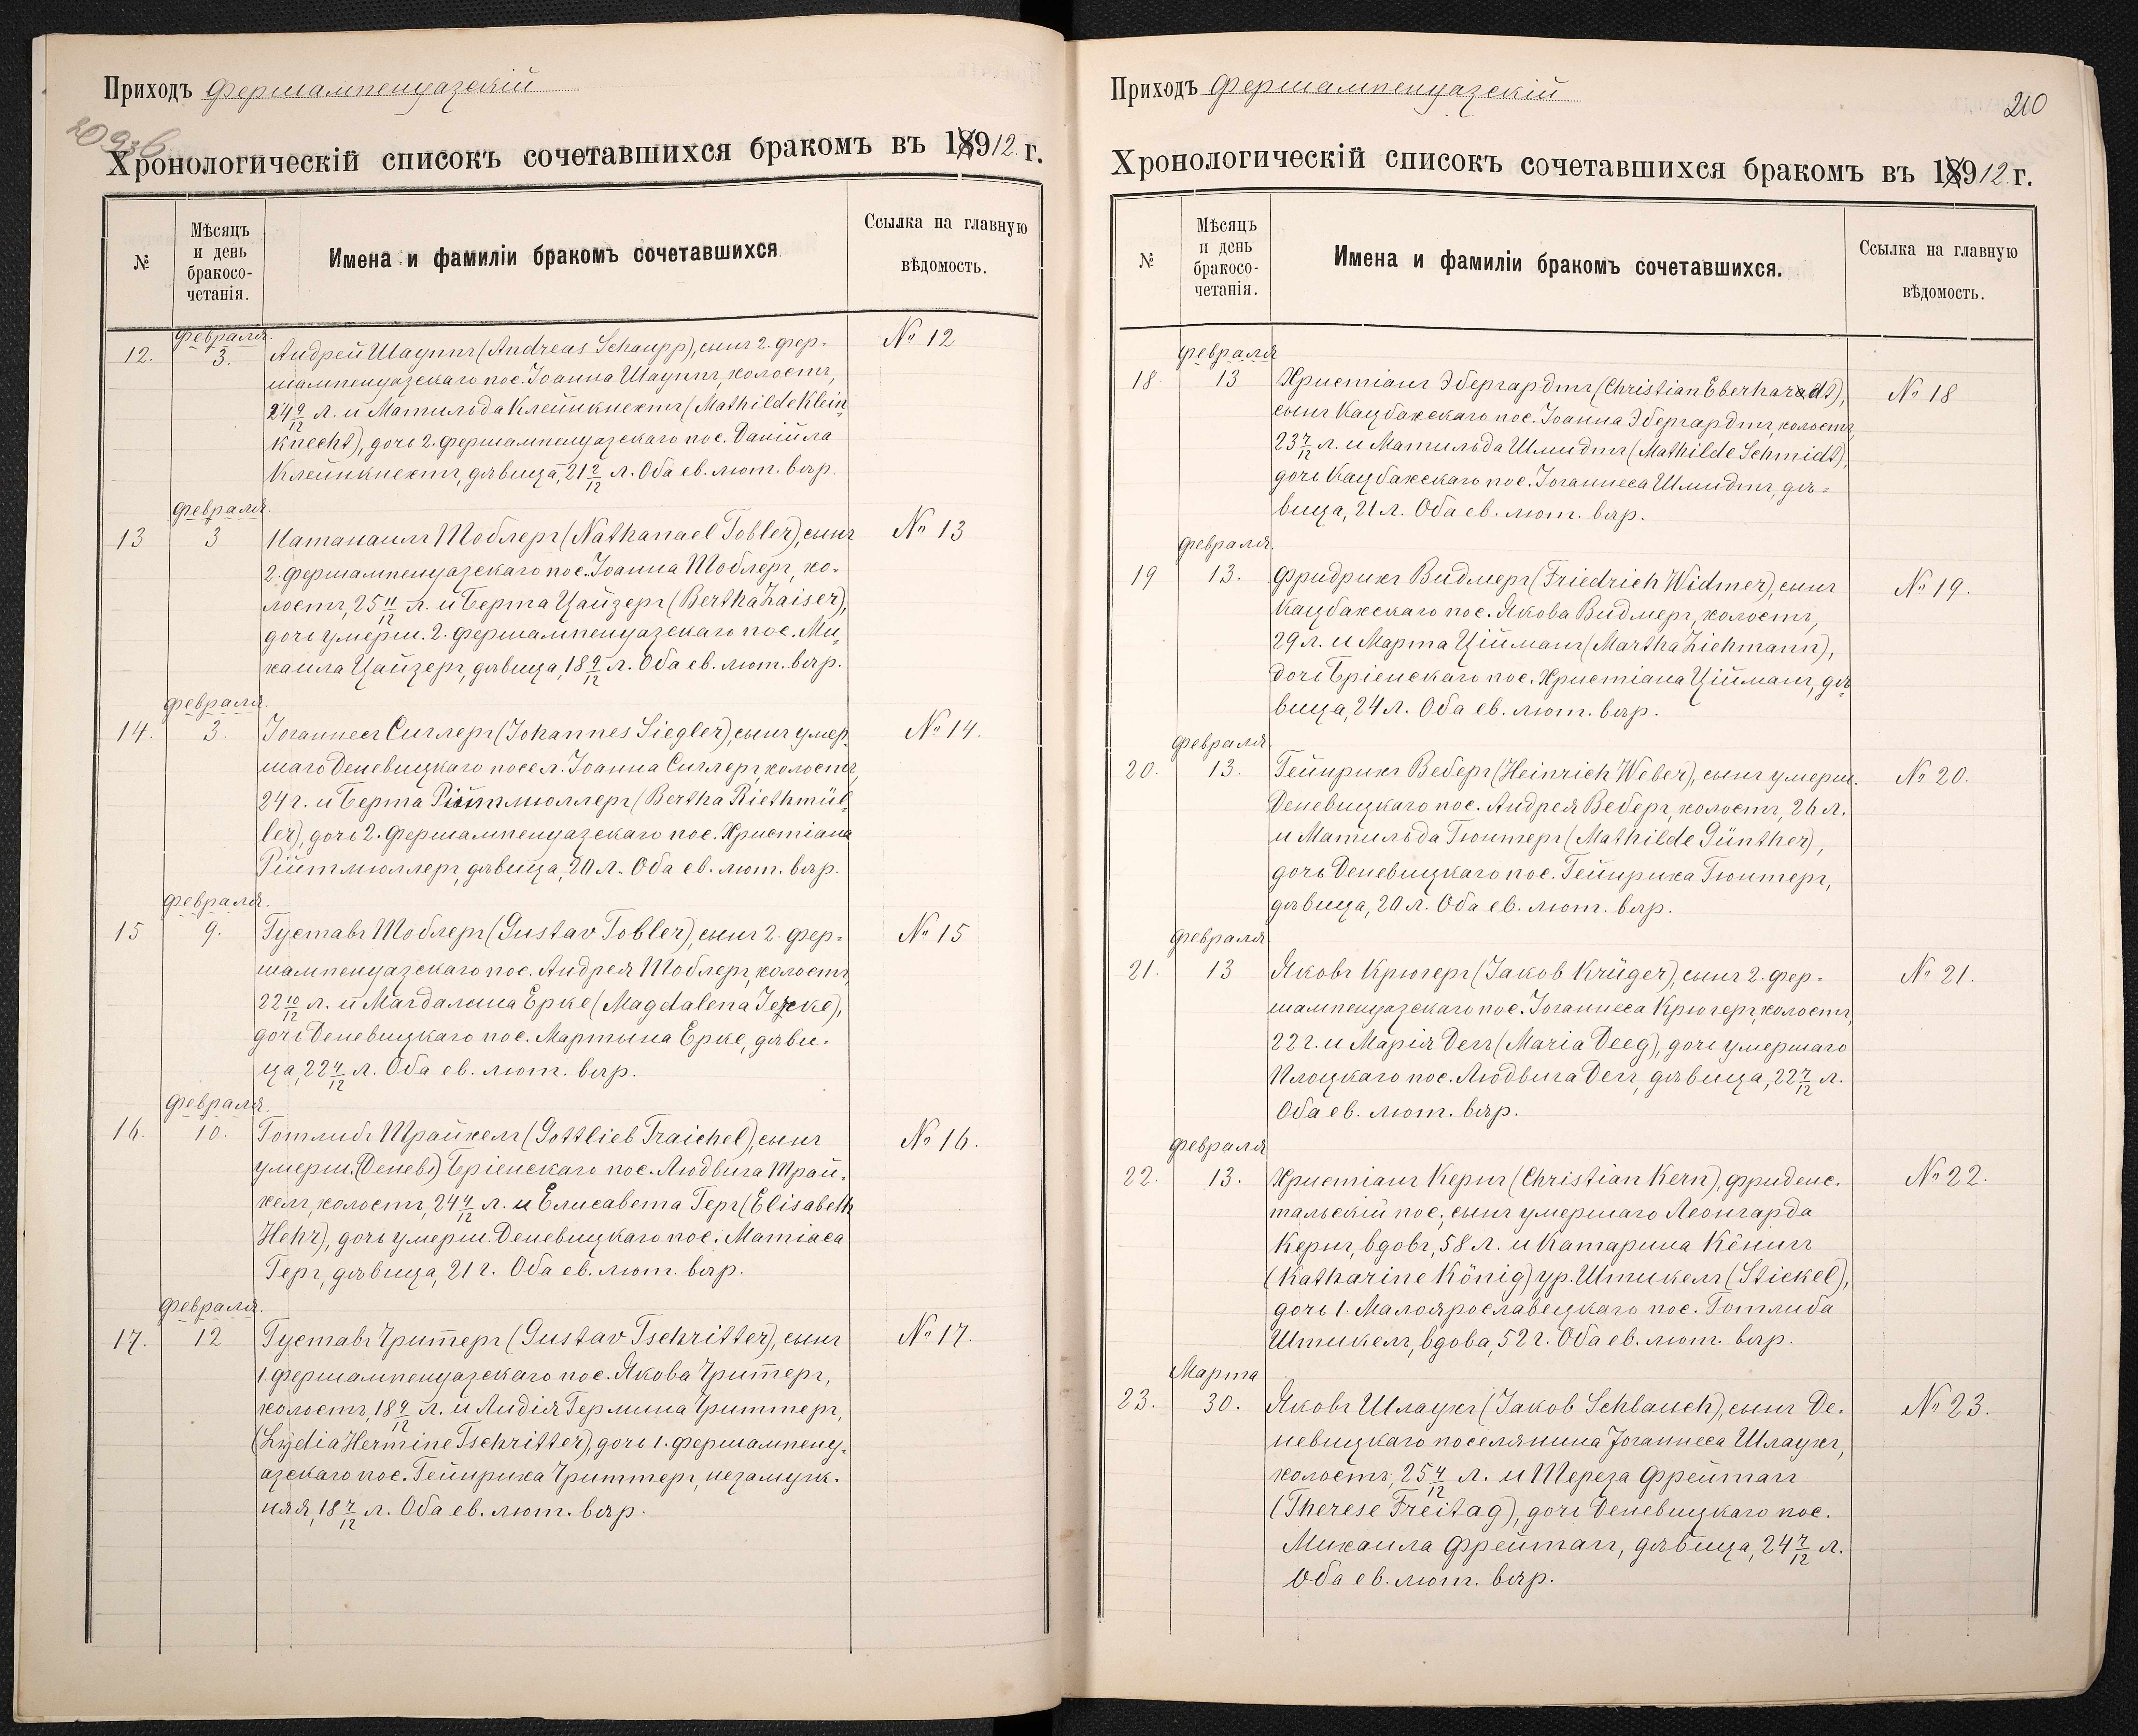 Приходъ Фершампенуазскій
209 об
Хронологическій списокъ сочетавшихся бракомъ въ 1912 г.
№
Мѣсяцъ
и день
бракосо-
четанія.
Имена и фамиліи бракомъ сочетавшихся
Ссылка на главную
вѣдомость.
Февраля.
12. 3. Андрей Шауппъ (Andreas Schaupp), сынъ 2. фер- № 12
шампенуазскаго пос. Іоанна Шауппъ, холостъ,
24 9/12 л. и Матильда Клейнкнехтъ (Mathilde Klein-
knecht), дочь 2. фершампенуазскаго пос. Даніила
Клейнкнехтъ, дѣвица, 21 9/12 л. Оба ев. лют. вѣр.
Февраля.
13 3 Натанаилъ Тоблеръ (Nathanael Tobler), сынъ № 13
2. фершампенуазскаго пос. Іоанна Тоблеръ, хо-
лостъ, 25 11/12 л. и Берта Цайзеръ (Bertha Zaiser),
дочь умерш. 2. фершампенуазскаго пос. Ми-
хаила Цайзеръ, дѣвица, 18 9/12 л. Оба ев. лют. вѣр.
Февраля.
14. 3. Іоганнесъ Сиглеръ (Johannes Siegler), сынъ умер- № 14.
шаго Деневицкаго посел. Іоанна Сиглеръ, холостъ,
24 г. и Берта Рійтмюллеръ (Bertha Riethmül-
ler), дочь 2. фершампенуазскаго пос. Христіана
Рійтмюллеръ, дѣвица, 20 л. Оба ев. лют. вѣр.
Февраля.
15 9. Густавъ Тоблеръ (Gustav Tobler), сынъ 2. фер- № 15
шампенуазскаго пос. Андрея Тоблеръ, холостъ,
22 10/12 л. и Магдалина Ерке (Magdalena Jerke),
дочь Деневицкаго пос. Мартына Ерке, дѣви-
ца, 22 4/12 л. Оба ев. лют. вѣр.
Февраля.
16. 10. Готлибъ Трайхелъ (Gottlieb Traichel), сынъ № 16.
умерш. (Денев) Бріенскаго пос. Людвига Трай-
хелъ, холостъ, 24 4/12 л. и Елисавета Геръ (Elisabeth
Hehr), дочь умерш. Деневицкаго пос. Матіаса
Геръ, дѣвица, 21 г. Оба ев. лют. вѣр.
Февраля.
17. 12 Густавъ Чриттеръ (Gustav Tschritter), сынъ № 17.
1. фершампенуазскаго пос. Якова Чриттеръ,
холостъ, 18 9/12 л. и Лидія Гермина Чриттеръ,
(Lydia Hermine Tschritter), дочь 1. фершампену-
азскаго пос. Гейнриха Чриттеръ, незамуж-
няя, 18 7/12 л. Оба ев. лют. вѣр.
Приходъ Фершампенуазскій
210
Хронологическій списокъ сочетавшихся бракомъ въ 1912 г.
№
Мѣсяцъ
и день
бракосо-
четанія.
Имена и фамиліи бракомъ сочетавшихся.
Ссылка на главную
вѣдомость.
Февраля
18. 13 Христіанъ Эбергардтъ (Christian Eberhardt), № 18
сынъ Кацбахскаго пос. Іоанна Эбергардтъ, холостъ,
23 7/12 л. и Матильда Шмидтъ (Mathilde Schmidt),
дочь Кацбахскаго пос. Іоганнеса Шмидтъ, дѣ-
вица, 21 л. Оба ев. лют. вѣр.
Февраля.
19 13. Фридрихъ Видмеръ (Friedrich Widmer), сынъ № 19.
Кацбахскаго пос. Якова Видмеръ, холостъ,
29 л. и Марта Ційманъ (Martha Ziehmann),
дочь Бріенскаго пос. Христіана Ційманъ, дѣ-
вица, 24 л. Оба ев. лют. вѣр.
Февраля.
20. 13. Гейнрихъ Веберъ (Heinrich Weber), сынъ умерш. № 20.
Деневицкаго пос. Андрея Веберъ, холостъ, 26 л.
и Матильда Гюнтеръ (Mathilde Günther),
дочь Деневицкаго пос. Гейнриха Гюнтеръ,
дѣвица, 20 л. Оба ев. лют. вѣр.
Февраля.
21. 13 Яковъ Крюгеръ (Jakob Krüger), сынъ 2. фер- № 21.
шампенуазскаго пос. Іоганнеса Крюгеръ, холостъ,
22 г. и Марія Дегъ (Maria Deeg), дочь умершаго
Плоцкаго пос. Людвига Дегъ, дѣвица, 22 7/12 л.
Оба ев. лют. вѣр.
Февраля
22. 13. Христіанъ Кернъ (Christian Kern), фриденс- № 22.
тальскій пос., сынъ умершаго Леонгарда
Кернъ, вдовъ, 58 л. и Катарина Кёнигъ
(Katharine König) ур. Штикелъ (Stickel),
дочь 1. Малоярославецкаго пос. Готлиба
Штикелъ, вдова, 52 г. Оба ев. лют. вѣр.
Марта
23. 30. Яковъ Шлаухъ (Jakob Schlauch), сынъ Де- № 23.
невицкаго поселянина Іоганнеса Шлаухъ,
холостъ, 25 4/12 л. и Тереза Фрейтагъ
(Therese Freitag), дочь Деневицкаго пос.
Михаила Фрейтагъ, дѣвица, 24 7/12 л.
Оба ев. лют. вѣр.